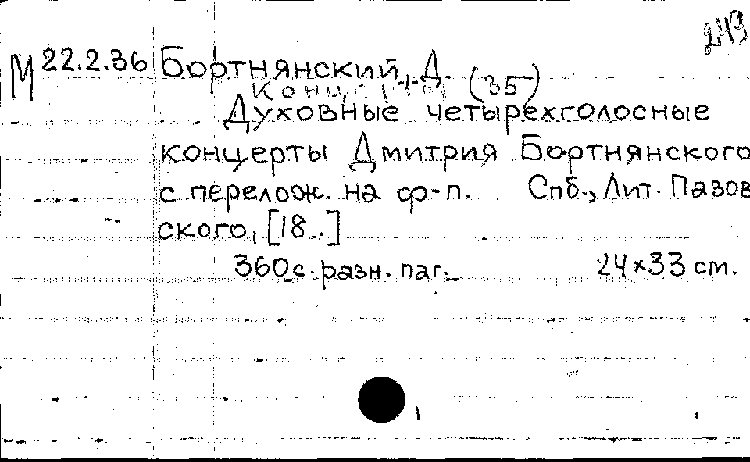 243
М 22.2.36 Бортнянский, Д.
Конц (35)
Духовные четырехголосные
концерты Дмитрия Бортнянского
с перелож. на ф-п. Спб., Лит. Пазов
ского, [18..]
360 с. разн. паг. 24×33 см.